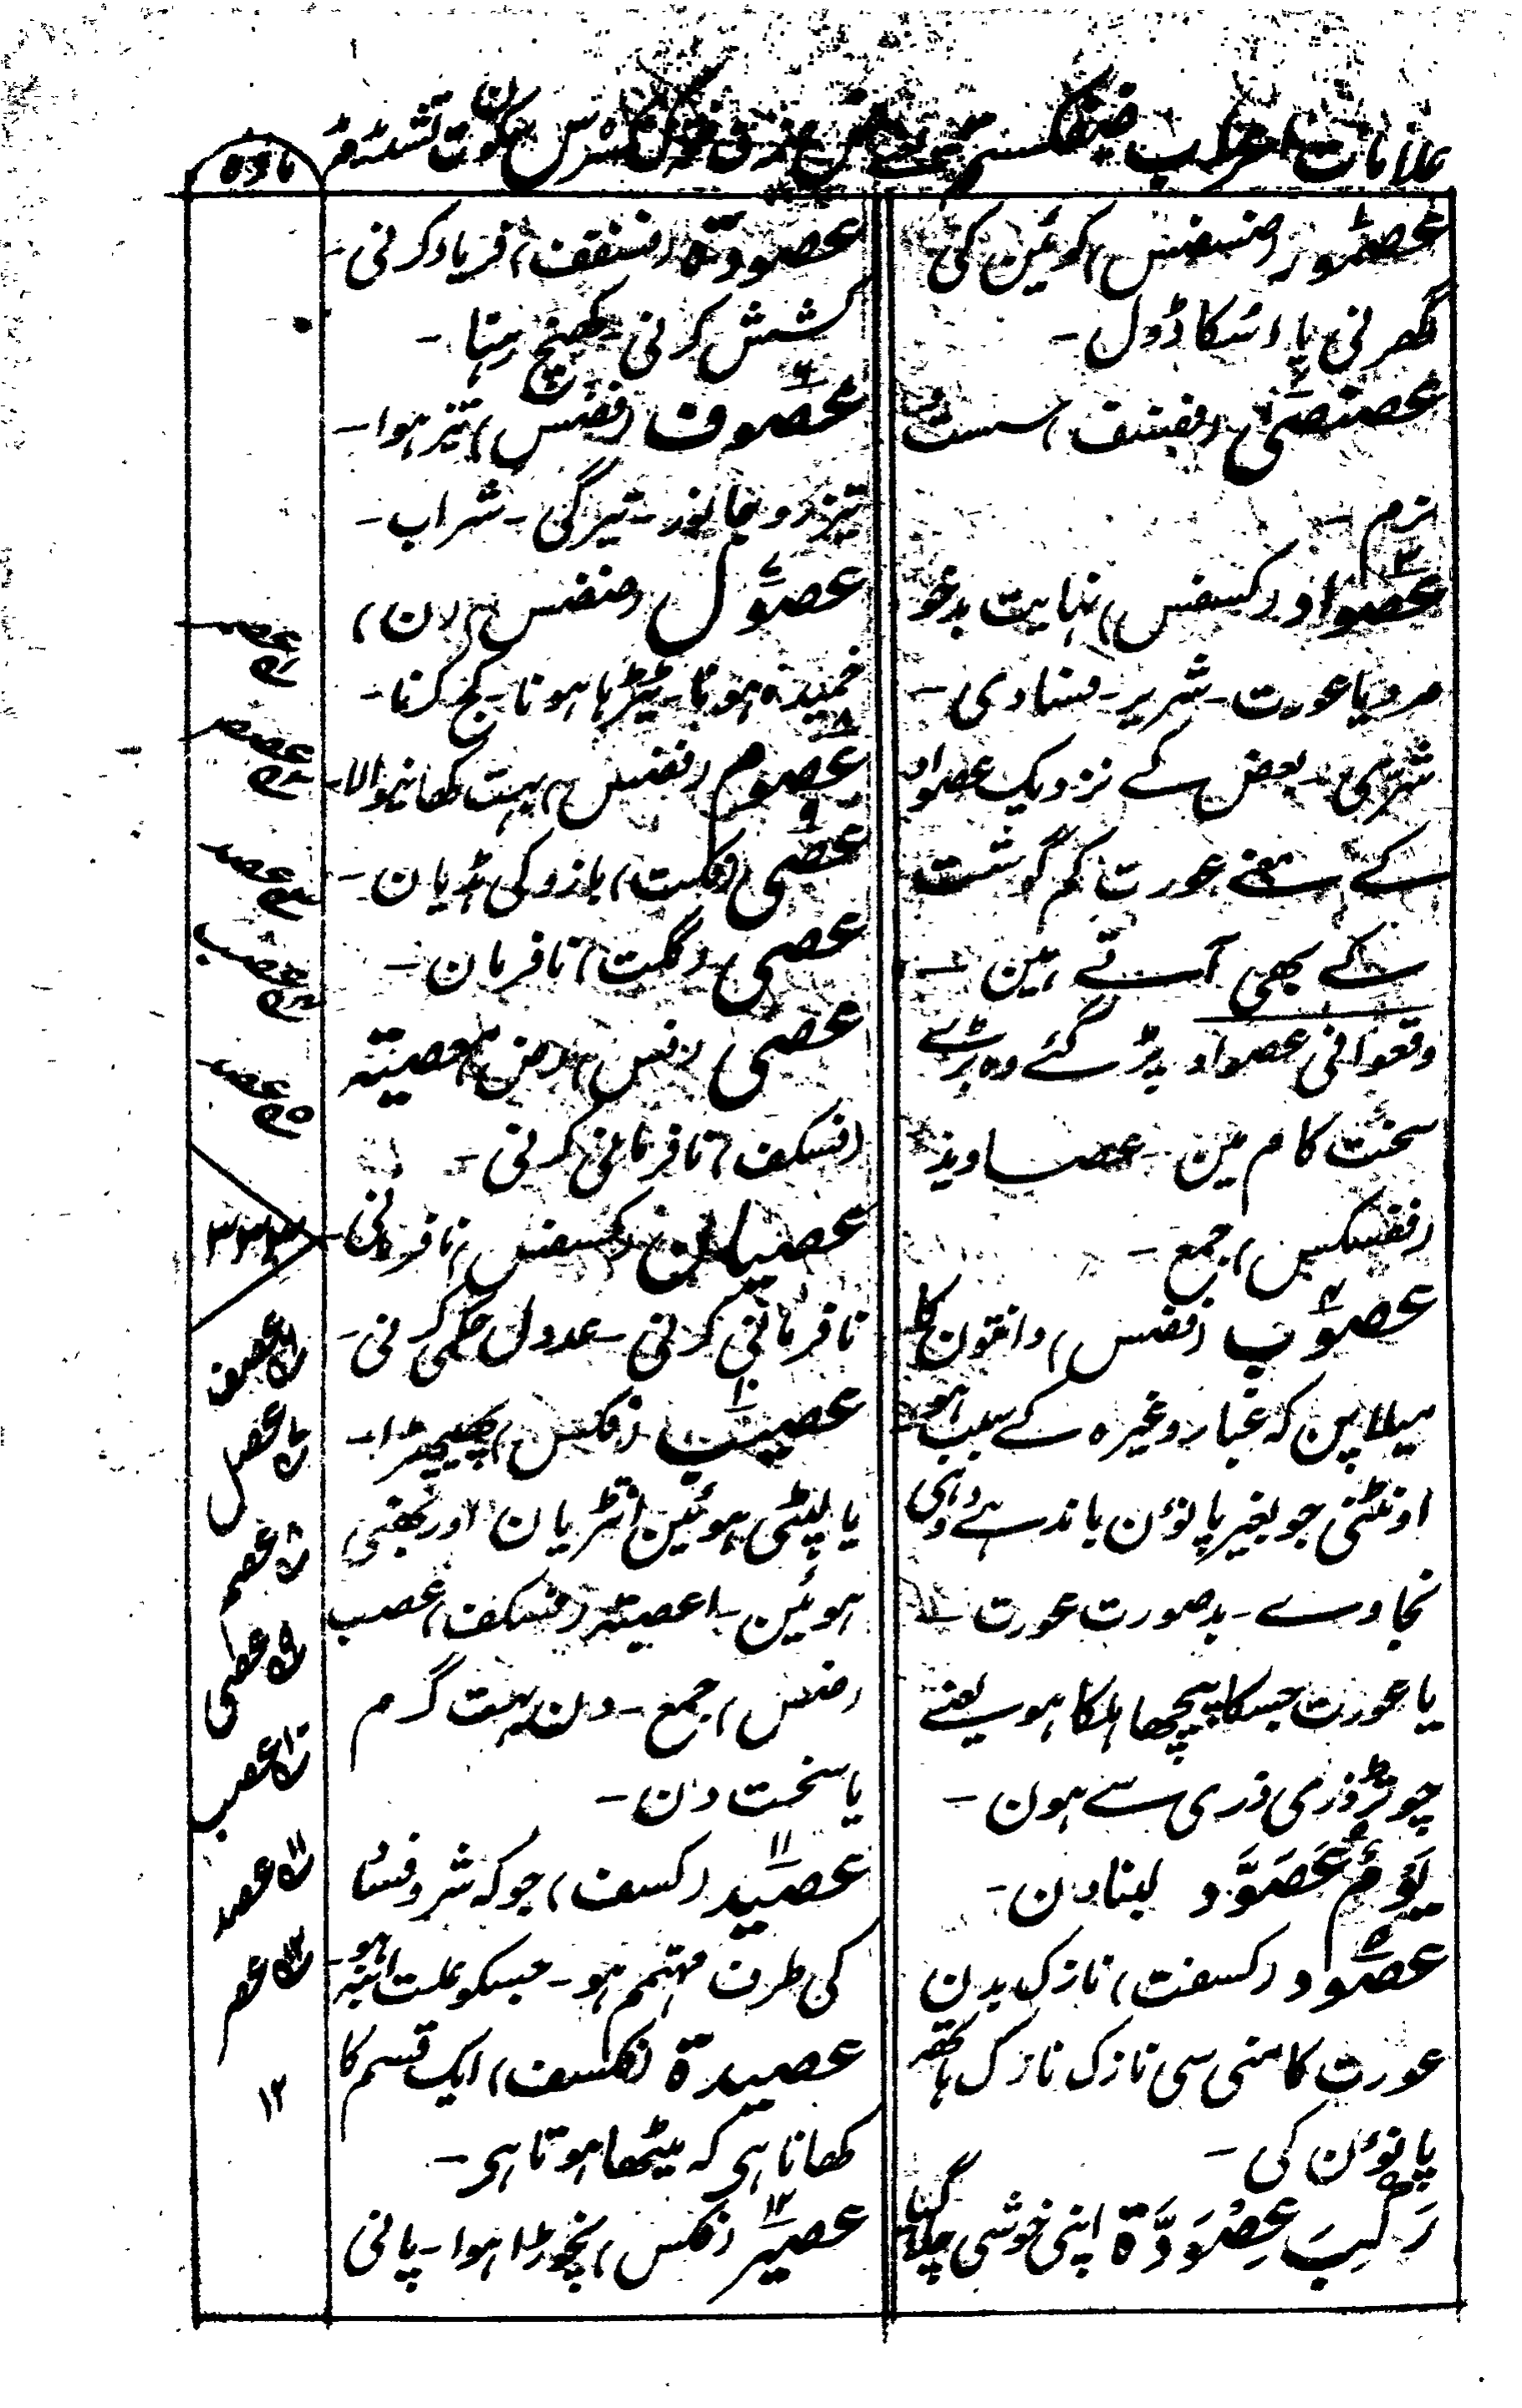 علامات اعراب
مادہ
عصمور (ضسضس) کوئین کی
گھرنی یا اسکا ڈول -
عصنصی (بفتنف) سست و
نرم -
عصواد (کسفس) نہایت بدخو
مرد یا عورت - شریر - فسادی -
شرسی - بعض کے نزدیک عصواد
کے معنے عورت کم گوشت
کے بھی آتے ہین -
وقعوا فی عصواد پڑ گئے وہ بڑے
سخت کام مین - عصاوید
(فسکس) جمع -
عصوب (فضس) دانتون کا
میلا پن کہ غبار وغیرہ کے سبب ہو
اونٹنی جو بغیر پانوٴن باندہے دوہی
نجاوے - بدصورت عورت -
یا عورت جسکا پیچھا ہلکا ہو یعنے
چوتڑ ذری ذری سے ہون -
یَوْمٌ عَصَوَّد لنبا دن -
عصود (کسفت) نازک بدن
عورت کامنی سی نازک نازک ہاتھ
پانوٴن کی -
رَکِبَ عِصْوَدَّةَ اپنی خوشی چلا گیا
عصودة (فسفقف) فریاد کرنی -
کشش کرنی - کھنچ رہنا -
عصوف (فضس) تیز ہوا -
تیز رو جانور - تیرگی - شراب -
عصول (ضضس) (ن)
خمیدہ ہونا - ٹیڑہا ہونا - کج کرنا -
عصوم (فضس) بہت کھانیوالا -
عصی (فکت) بازو کی ہڈیان -
عصی (فکت) نافرمان -
عصی (فس) (ض) معصیتہ
(فسکف) نافرمانی کرنی -
عصیان (کسفس) نافرمانی -
نافرمانی کرنی - عدول حکمی کرنی -
عصیب (فکس) پھیپھڑا -
یا لپٹی ہوئین انتڑیان اور بھنی
ہوئین - اعصیتہ (فسکف) عصب
(ضس) جمع - دن بہت گرم
یا سخت دن -
عصید (کسف) جو کہ شر و فساد
کی طرف متہم ہو - جسکو علت ابنہ ہو -
عصیدة (فکسف) ایک قسم کا
کھانا ہی کہ میٹھا ہوتا ہی -
عصیر (فکس) نچوڑا ہوا - پانی
عصر
عصب
عصر
عصف
عصل
عصم
عصی
عصب
عصد
عصر
۱۲